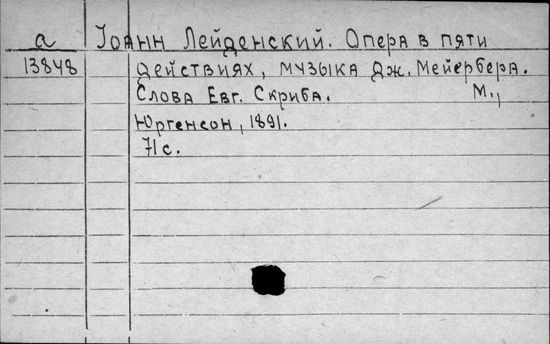 а Іоанн Лейденский. Опера в пяти
13848 действиях, музыка Дж. Мейербера.
Слова Евг. Скриба. М.,
Юргенсон, 1891.
71 с.